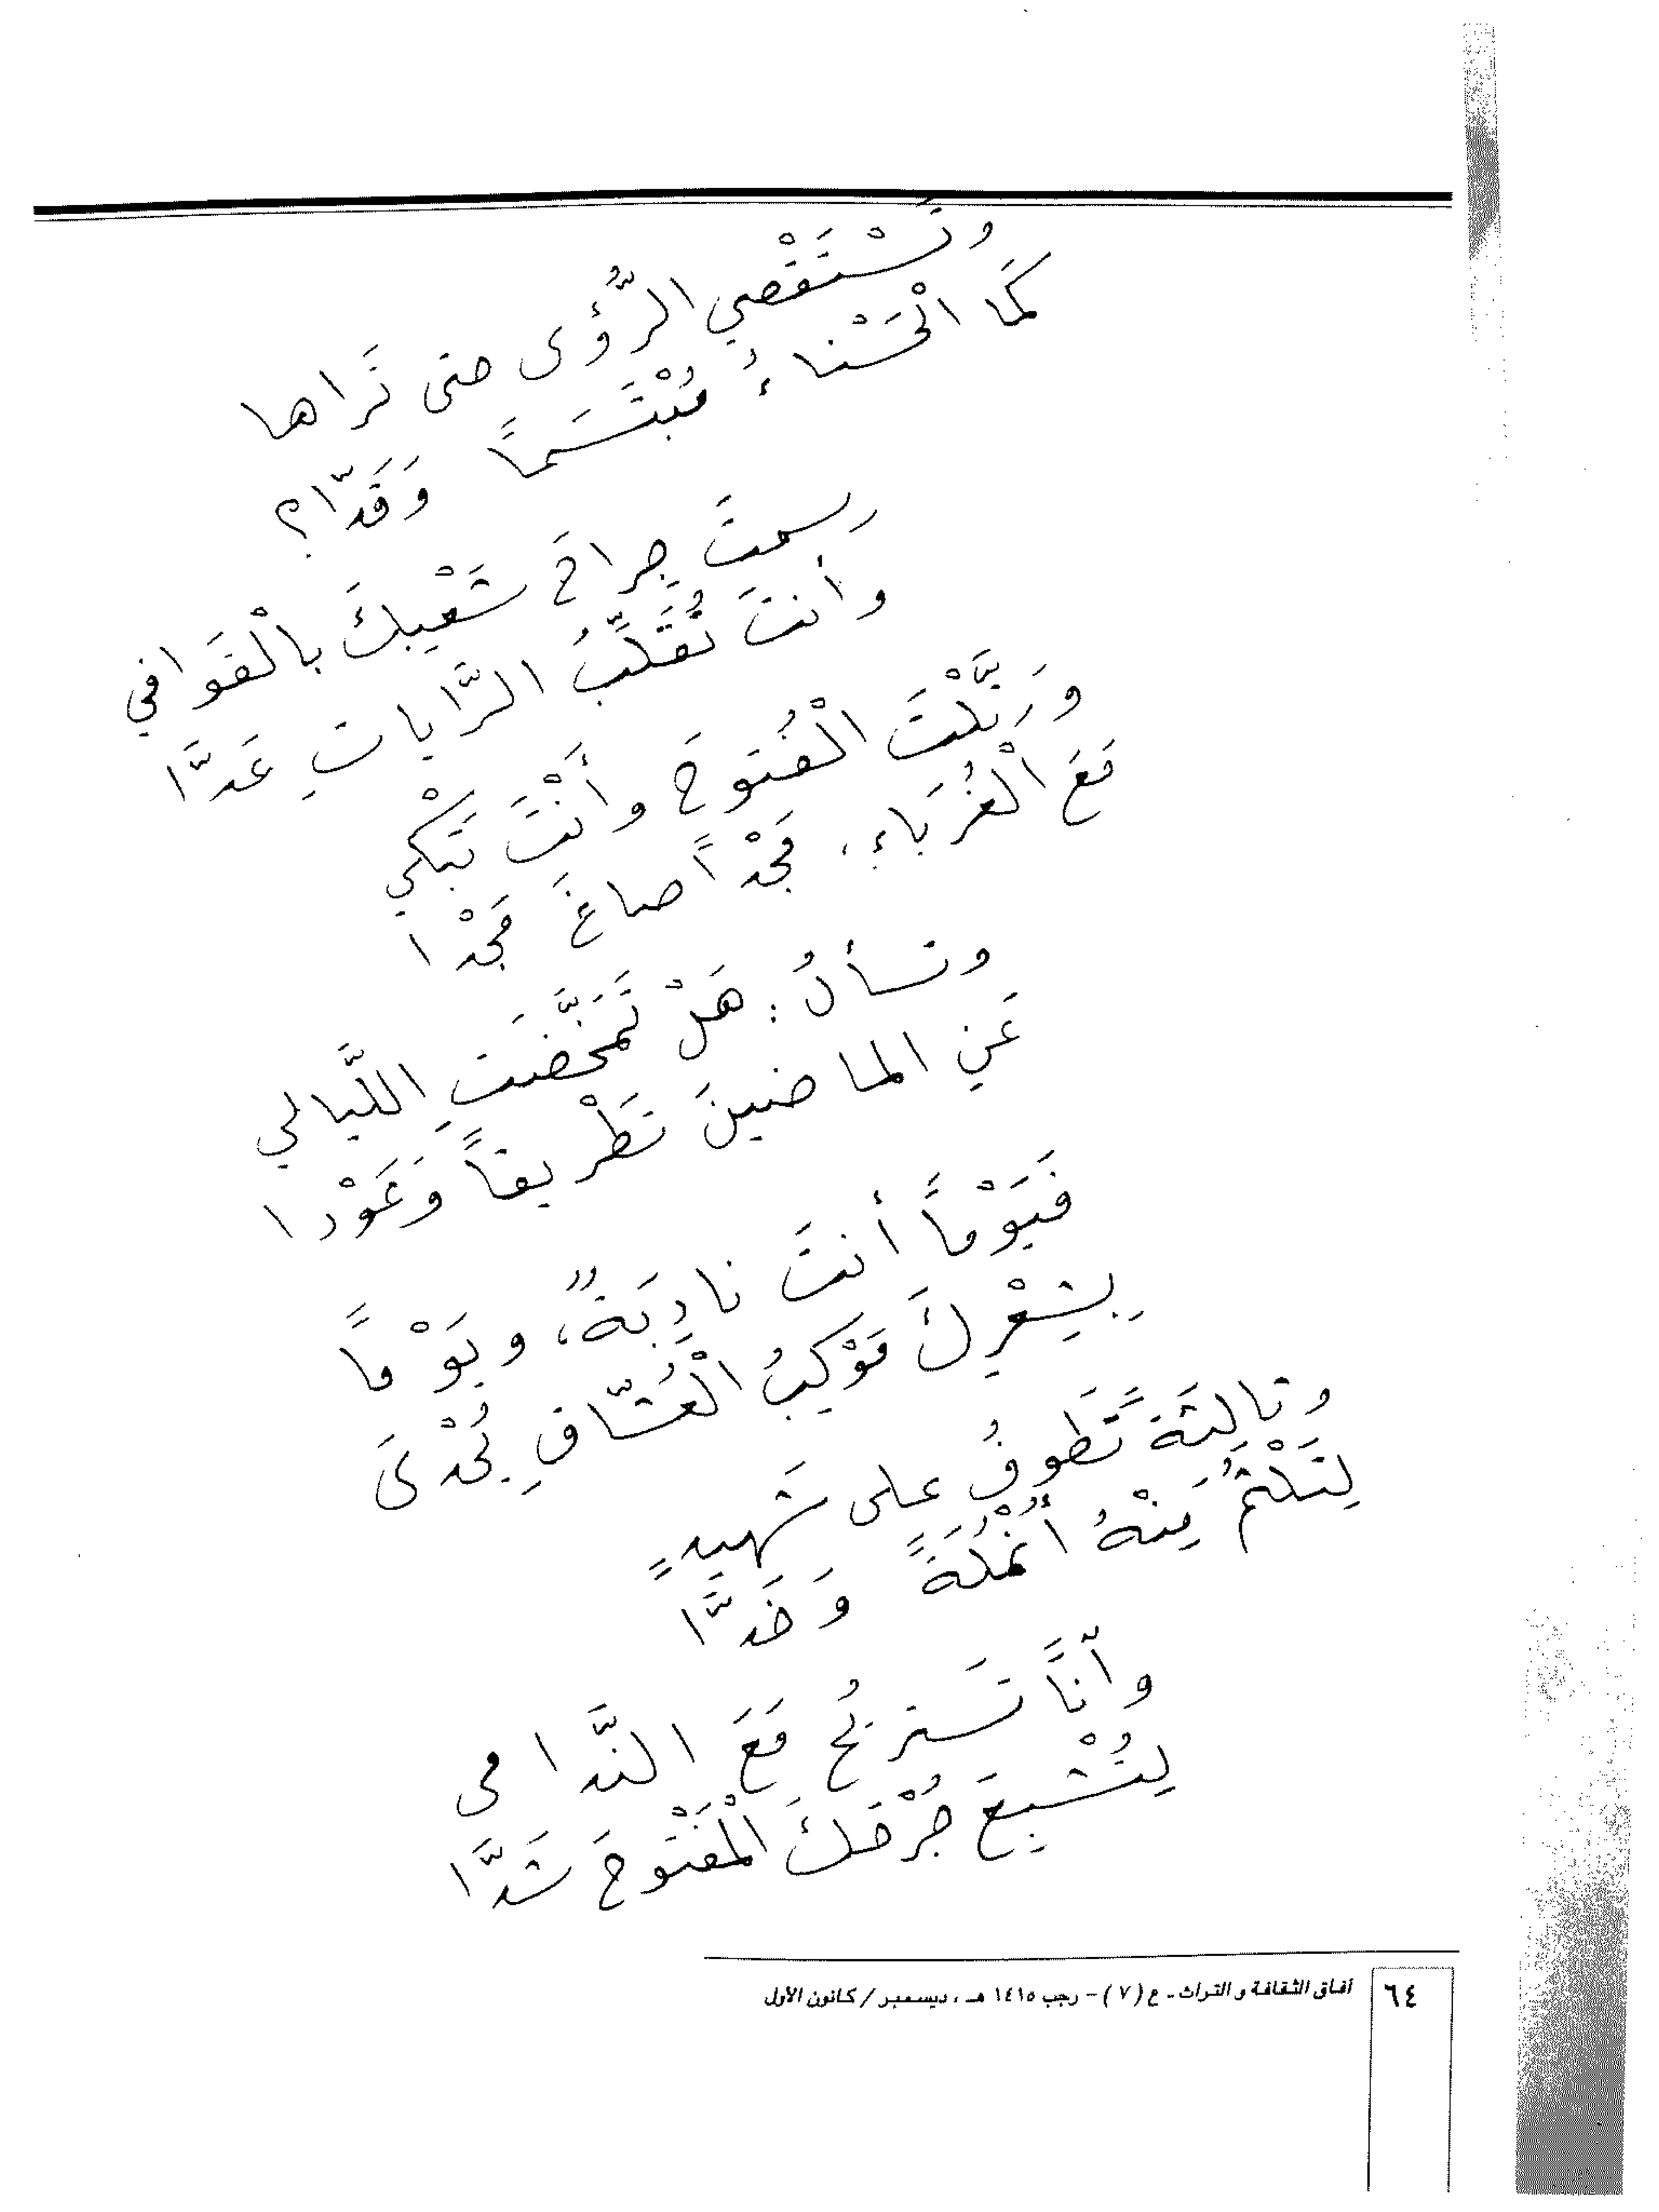 وتَسْتَقْصِي الرُّؤى حتى تَراها
كَمَا الْحَسْناءُ مُبْتَسَماً وَقَدّا؟
رسمتَ جِراحَ شَعْبِكَ بالْقَوافي
وأنتَ تُقَلِّبُ الرَّاياتِ عَدَّا
وَرَتَّلْتَ الْفُتوحَ وأَنْتَ تَبْكي
مَعَ الْغُرَباءِ، مَجْداً صاغَ مَجْدا
وتسألُ: هَلْ تَمَخَّضَتِ اللَّيالي
عَنِ الماضينَ تَطْريفاً وَعَوْدا
فَيَوْماً أنتَ نادِبَةٌ، ويَوْماً
بِشِعْرِكَ مَوْكِبُ الْعُشّاقِ يُحْدَى
وثالثةً تَطوفُ على شَهيدٍ
لِتَلْثمَ مِنْهُ أُنْمُلَةً وَخَدَّا
وآناً تَستريحُ مَعَ النَّدامى
لِتُشْبِعَ جُرْحَكَ الْمَفْتوحَ شَدَّا
آفاق الثقافة والتراث - ع (٧) - رجب ١٤١٥ هـ ، ديسمبر / كانون الأول
٦٤